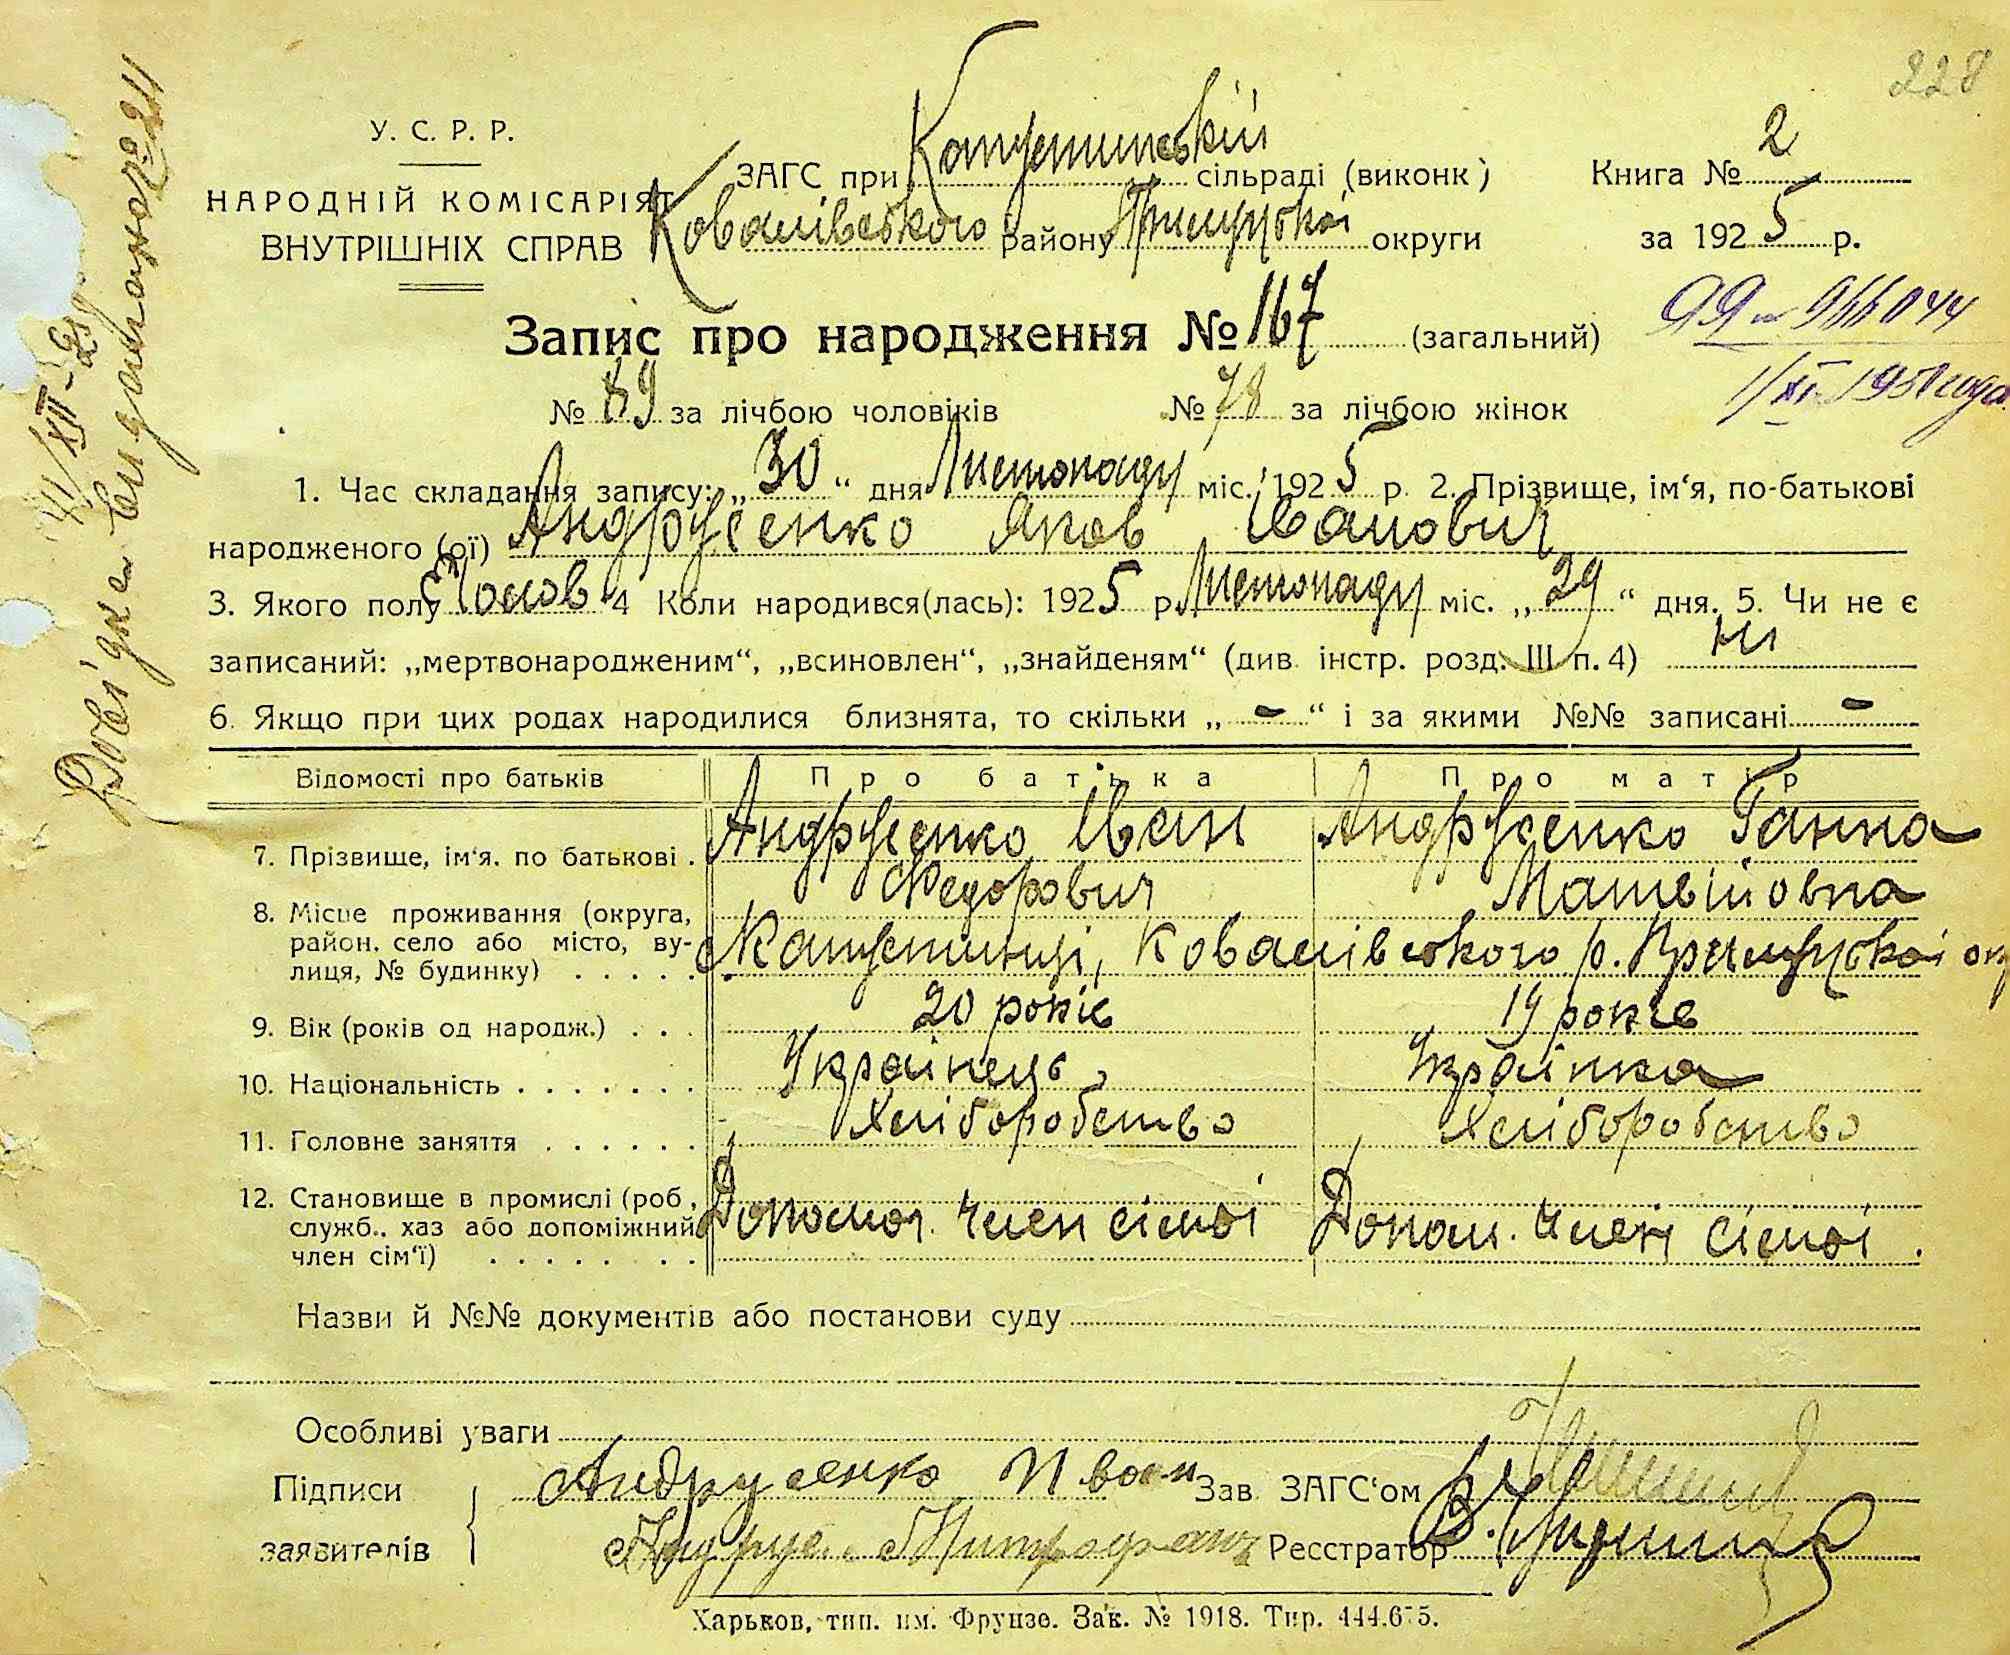 228
У. С. Р. Р.
НАРОДНІЙ КОМІСАРІЯТ
ВНУТРІШНІХ СПРАВ
ЗАГС при Капустинській сільраді (виконк)
Ковалівського району Прилуцької округи
Книга № 2
за 1925 р.
Запис про народження № 167 (загальний)
№ 89 за лічбою чоловіків № 78 за лічбою жінок
1. Час складання запису: „30“ дня Листопаду міс. 1925 р. 2. Прізвище, ім‘я, по-батькові
народженого (ої) Андрусенко Яков Іванович
3. Якого полу Чолов 4 Коли народився(лась): 1925 р. Листопаду міс. „29“ дня. 5. Чи не є
записаний: „мертвонародженим“, „всиновлен“, „знайденям“ (див. інстр. розд. III п. 4) Ні
6. Якщо при цих родах народилися близнята, то скільки „-“ і за якими №№ записані -
Відомості про батьків Про батька Про матір
7. Прізвище, ім‘я. по батькові . Андрусенко Іван Андрусенко Ганна
Федорович Матвіївна
8. Місце проживання (округа,
район. село або місто, ву-
лиця, № будинку) . . . . . Капустинці, Ковалівського р. Прилуцької окр
9. Вік (років од народж.) . . . 20 років 19 років
10. Національність . . . . . . . Українець Українка
11. Головне заняття . . . . . . Хліборобство Хліборобство
12. Становище в промислі (роб.,
служб., хаз або допоміжний
член сім‘ї) . . . . . . . Допомог. член сімї Допом. член сімї.
Назви й №№ документів або постанови суду
Особливі уваги
Підписи Андрусенко Иван Зав. ЗАГС‘ом
заявителів Митрофан Ресстратор
Харьков, тип. им. Фрунзе. Зак. № 1918. Тир. 444.675.